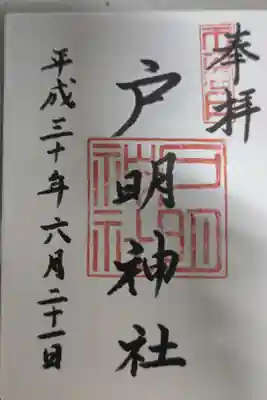 奉拝
戸明神社
平成三十年六月二十一日
戸明
神社